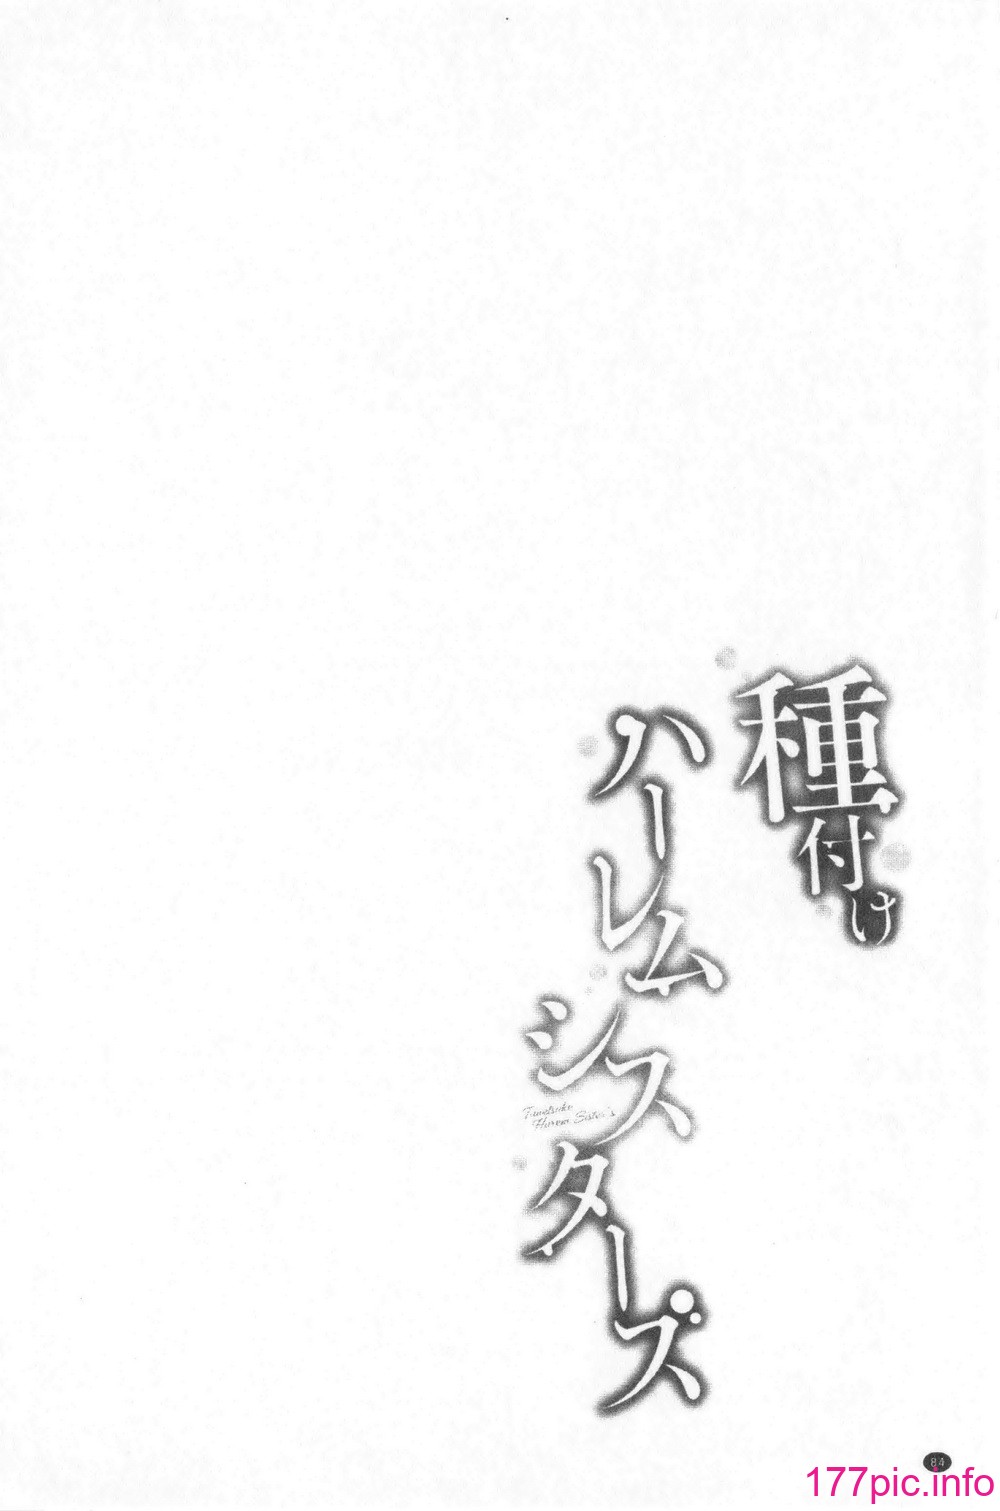 種付け
ハーレム
シスターズ
Tanetsuke
Harem Sister's
84
177pic.info